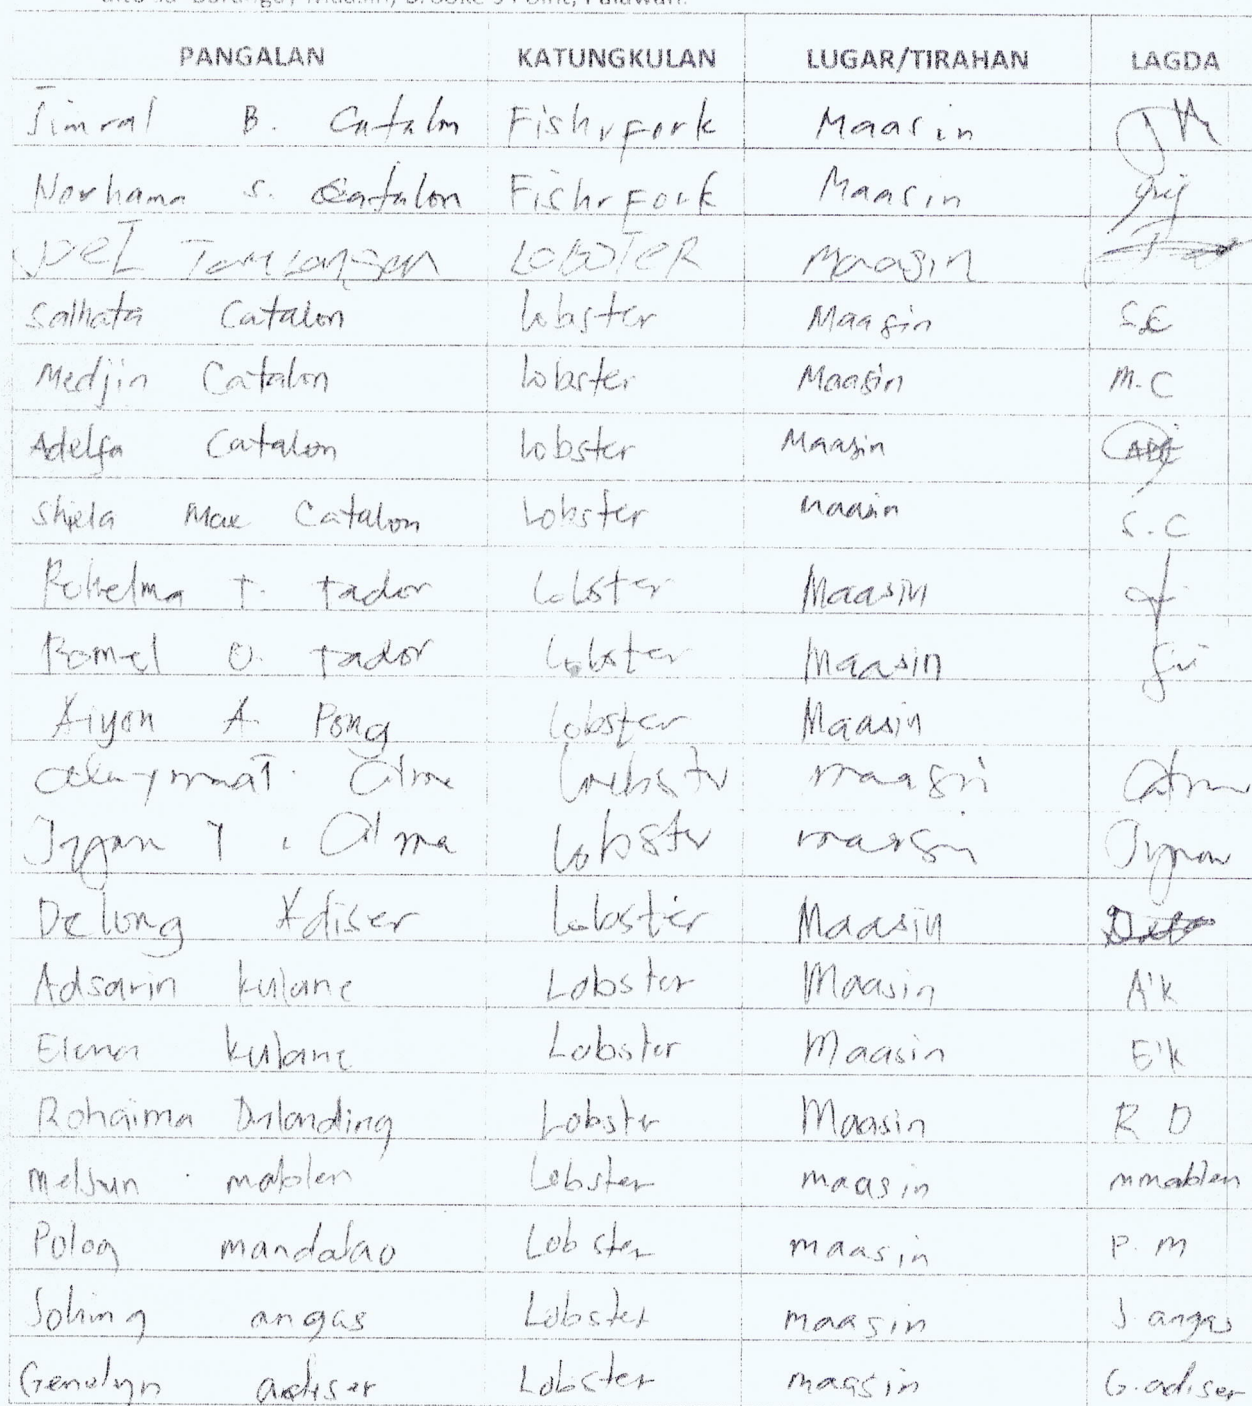 Brooke's Point, Palawan.
PANGALAN KATUNGKULAN LUGAR/TIRAHAN LAGDA
Jimral B. Catalon Fishrfork Maasin
Norhama S. Catalon Fishrfork Maasin
JOEL LOBSTER Maasin
Salhata Catalon lobster Maasin S.C
Medjin Catalon lobster Maasin M.C
Adelfa Catalon lobster Maasin
Shiela Mae Catalon Lobster maasin S.C
T. tador Lobster Maasin
Romel O. tador Lobster Maasin
Aiyon A. Pong Lobster Maasin
maasin
Alma Lobster maasin
Delong Adiser Lobster Maasin
Adsarin kulane Lobster Maasin A'K
Elena kulane Lobster Maasin E'K
Rohaima Dalanding Lobster Maasin R D
Meljun mablen Lobster maasin mmablen
Polog mandalao Lobster maasin P. M
angas Lobster maasin J angas
Genelyn adiser Lobster maasin G. adiser